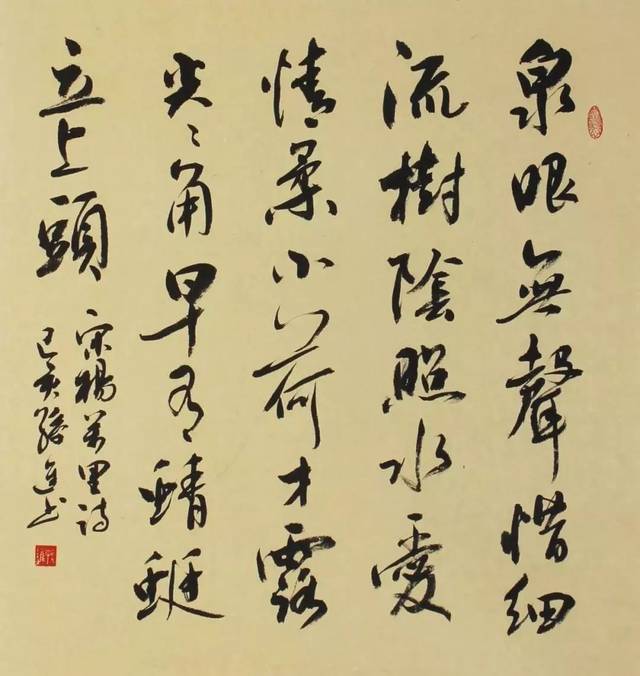 泉眼無聲惜細
流樹陰照水愛
情柔小荷才露
尖々角早有蜻蜓
立上頭
宋楊萬里詩
己亥书